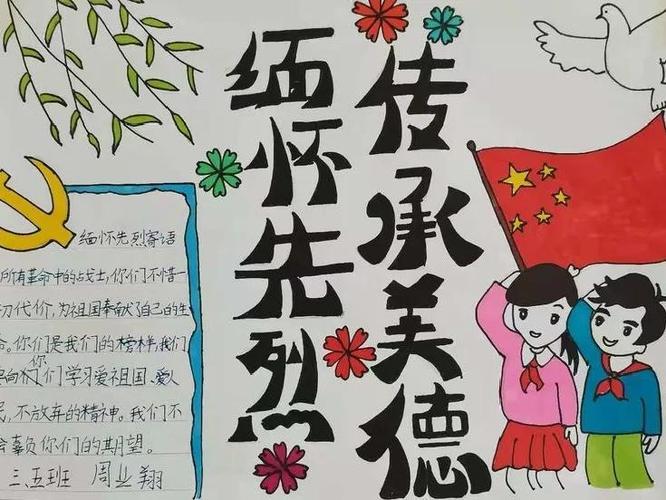 缅怀先烈
传承美德
缅怀先烈寄语
所有革命中的战士,你们不惜一
切代价,为祖国奉献了自己的生
命。你们是我们的榜样,我们
向你们学习爱祖国、爱人
民,不放弃的精神。我们不
会辜负你们的期望。
三.五班 周业翔